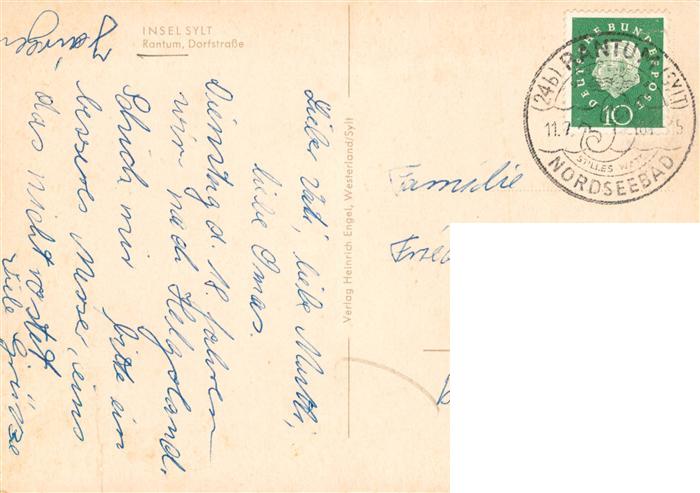 INSEL SYLT
Rantum, Dorfstraße
Lieber Vati, liebe Mutti,
liebe Omas.
Dienstag d. 18. fahren
wir nach Helgoland.
Schick mir bitte ein
besseres Messer, eins
das nicht rostet
Viele Grüsse
Jürgen
Verlag Heinrich Engel, Westerland/Sylt
DEUTSCHE BUNDESPOST
10
(24b) RANTUM (SYLT)
11.7.
STILLES WATT
NORDSEEBAD
Familie